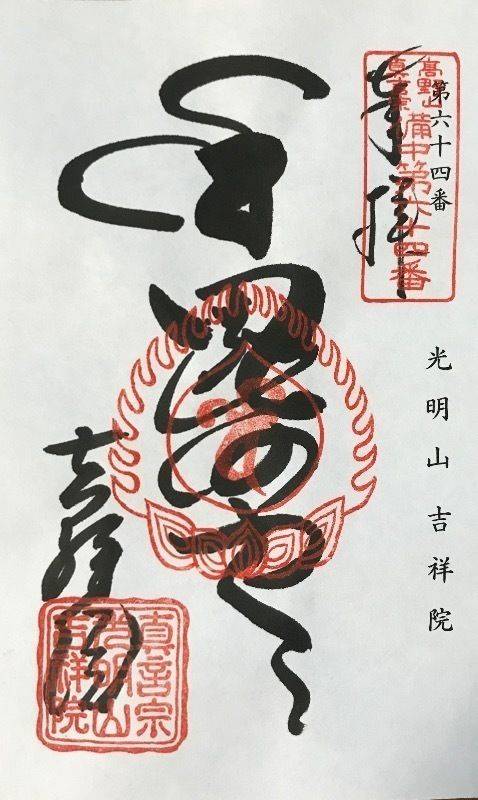 第六十四番
光明山吉祥院
高野山
真言宗
備中第六十四番
奉拝
吉祥院
真言宗
光明山
吉祥院